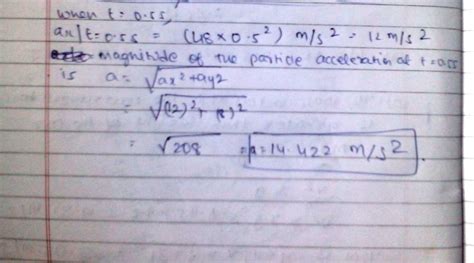 when t = 0.5s,
ax|t=0.5s = (48 × 0.5²) m/s² = 12 m/s²
magnitude of the particle acceleration at t=0.5s
is a = √ax²+ay²
= √(12)²+(8)²
= √208 = a = 14.422 m/s².